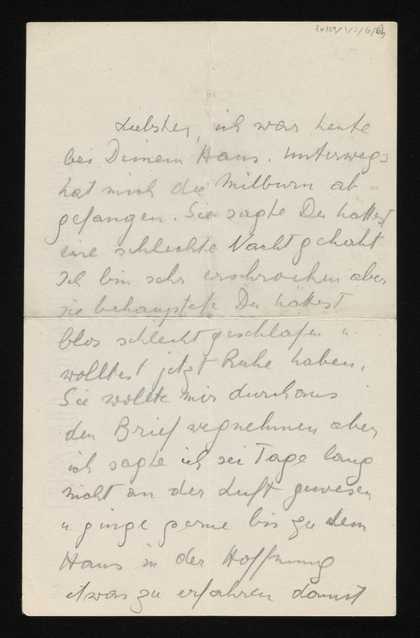 Liebster, ich war heute
bei Deinem Haus. Unterwegs
hat mich die Milburn ab
gefangen. Sie sagte Du hattest
eine schlechte Nacht gehabt
Ich bin sehr erschrocken aber
sie behauptete Du hättest
blos schlecht geschlafen u.
wolltest jetzt Ruhe haben.
Sie wollte mir durchaus
den Brief wegnehmen aber
ich sagte ich sei Tage lang
nicht an der Luft gewesen
u ginge gerne bis zu dem
Haus in der Hoffnung
etwas zu erfahren damit